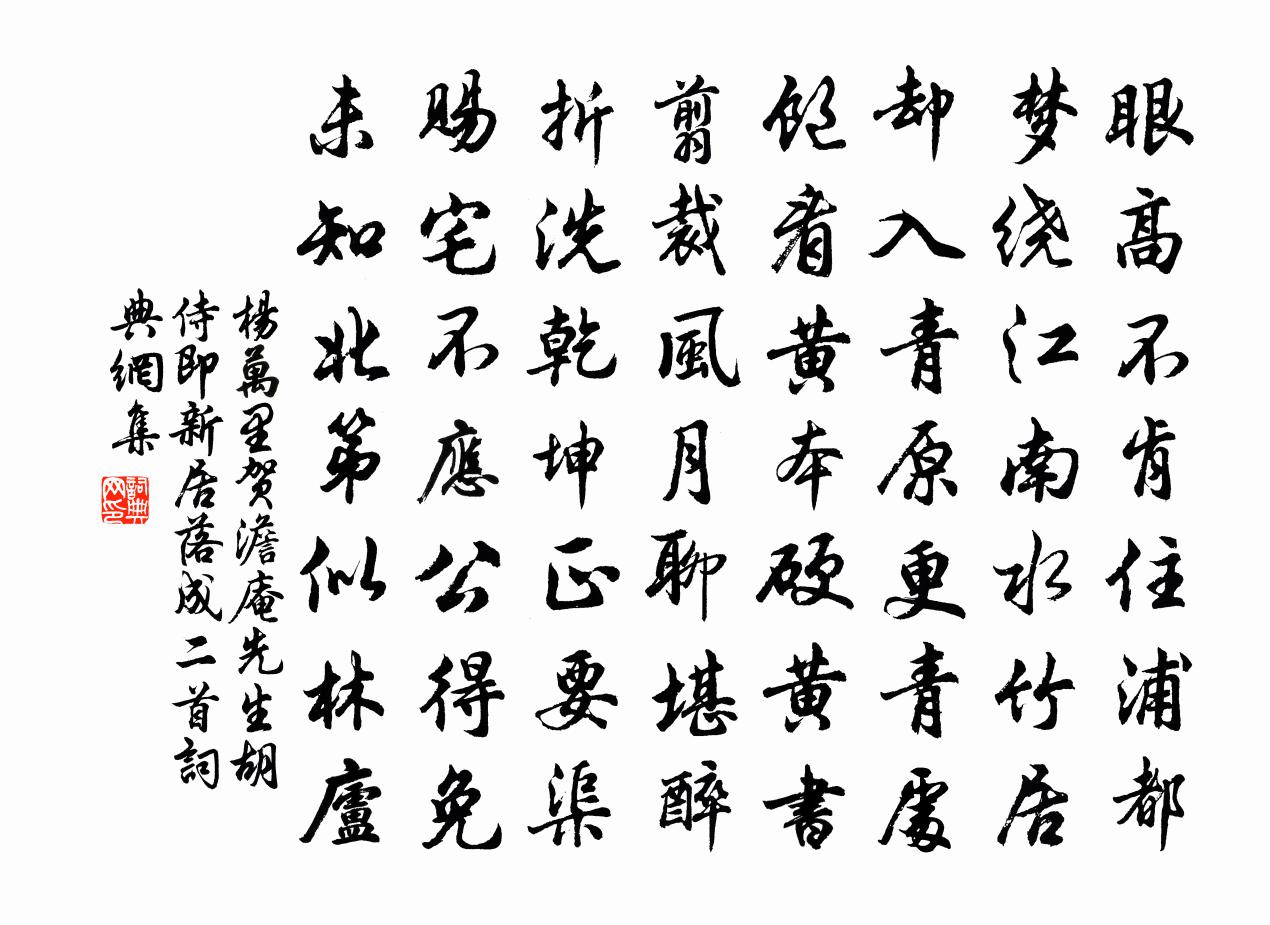 眼高不肯住浦都
梦绕江南水竹居
却入青原更青處
飽看黄本硬黄書
翦裁風月聊堪醉
折洗乾坤正要渠
賜宅不應公得免
未知北第似林廬
楊萬里賀澹庵先生胡
侍郎新居落成二首詞
典網集
詞典网印